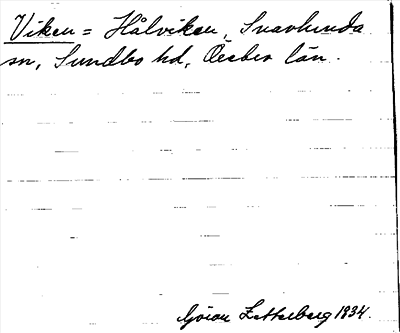 Viken = Hålviken, Snavlunda
sn, Sundbo hd, Örebro län.
Göran Zetterberg 1934.